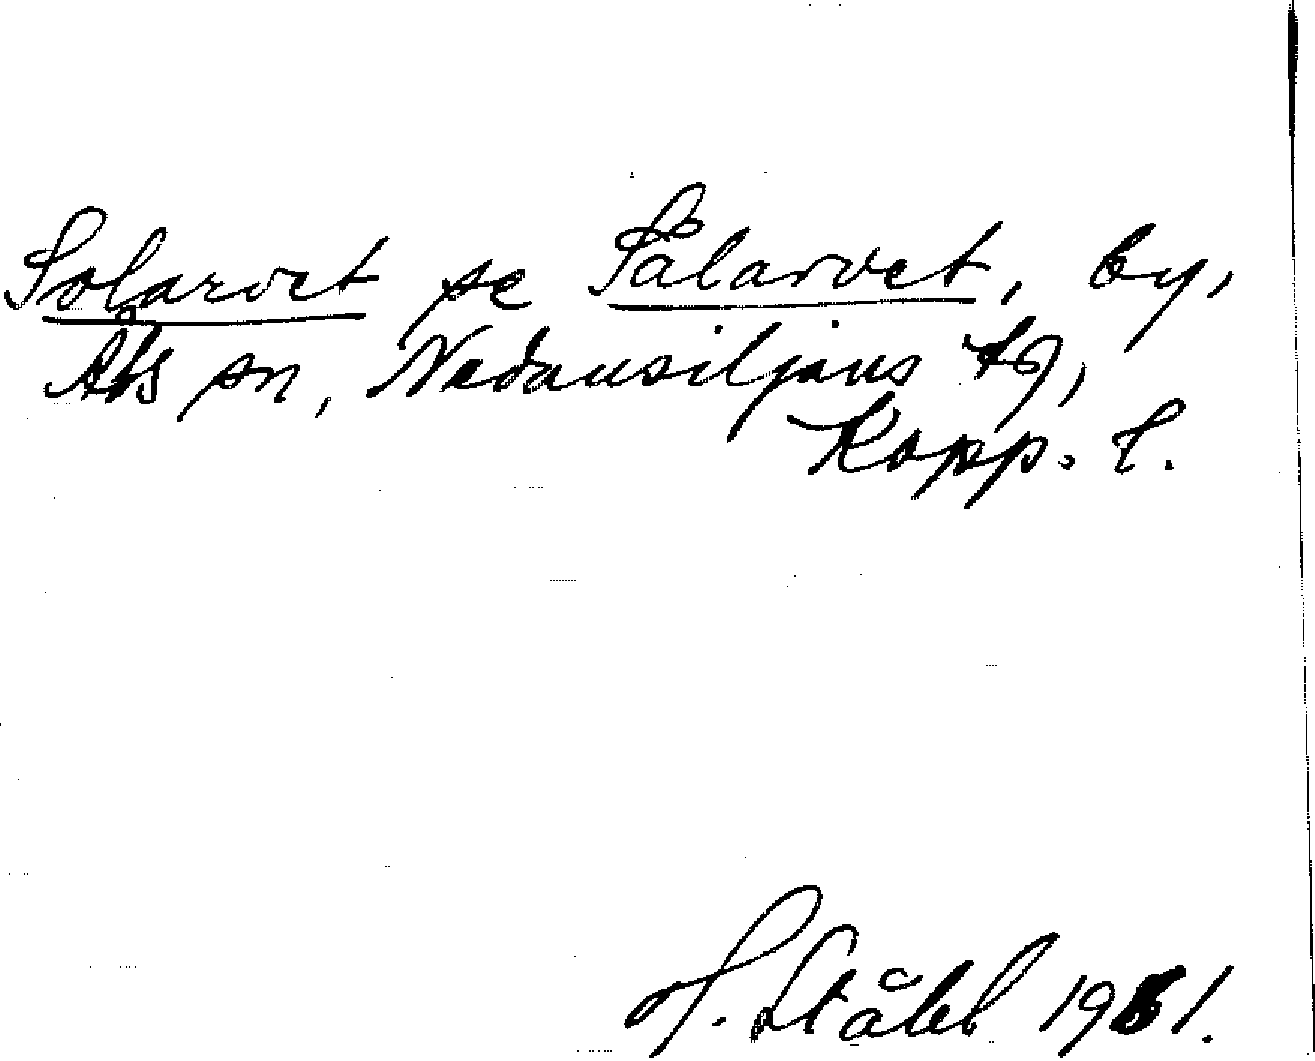 Solarvet se Sålarvet, by,
Als sn, Nedansiljans tg,
Kopp. l.
H. Ståhl 1961.